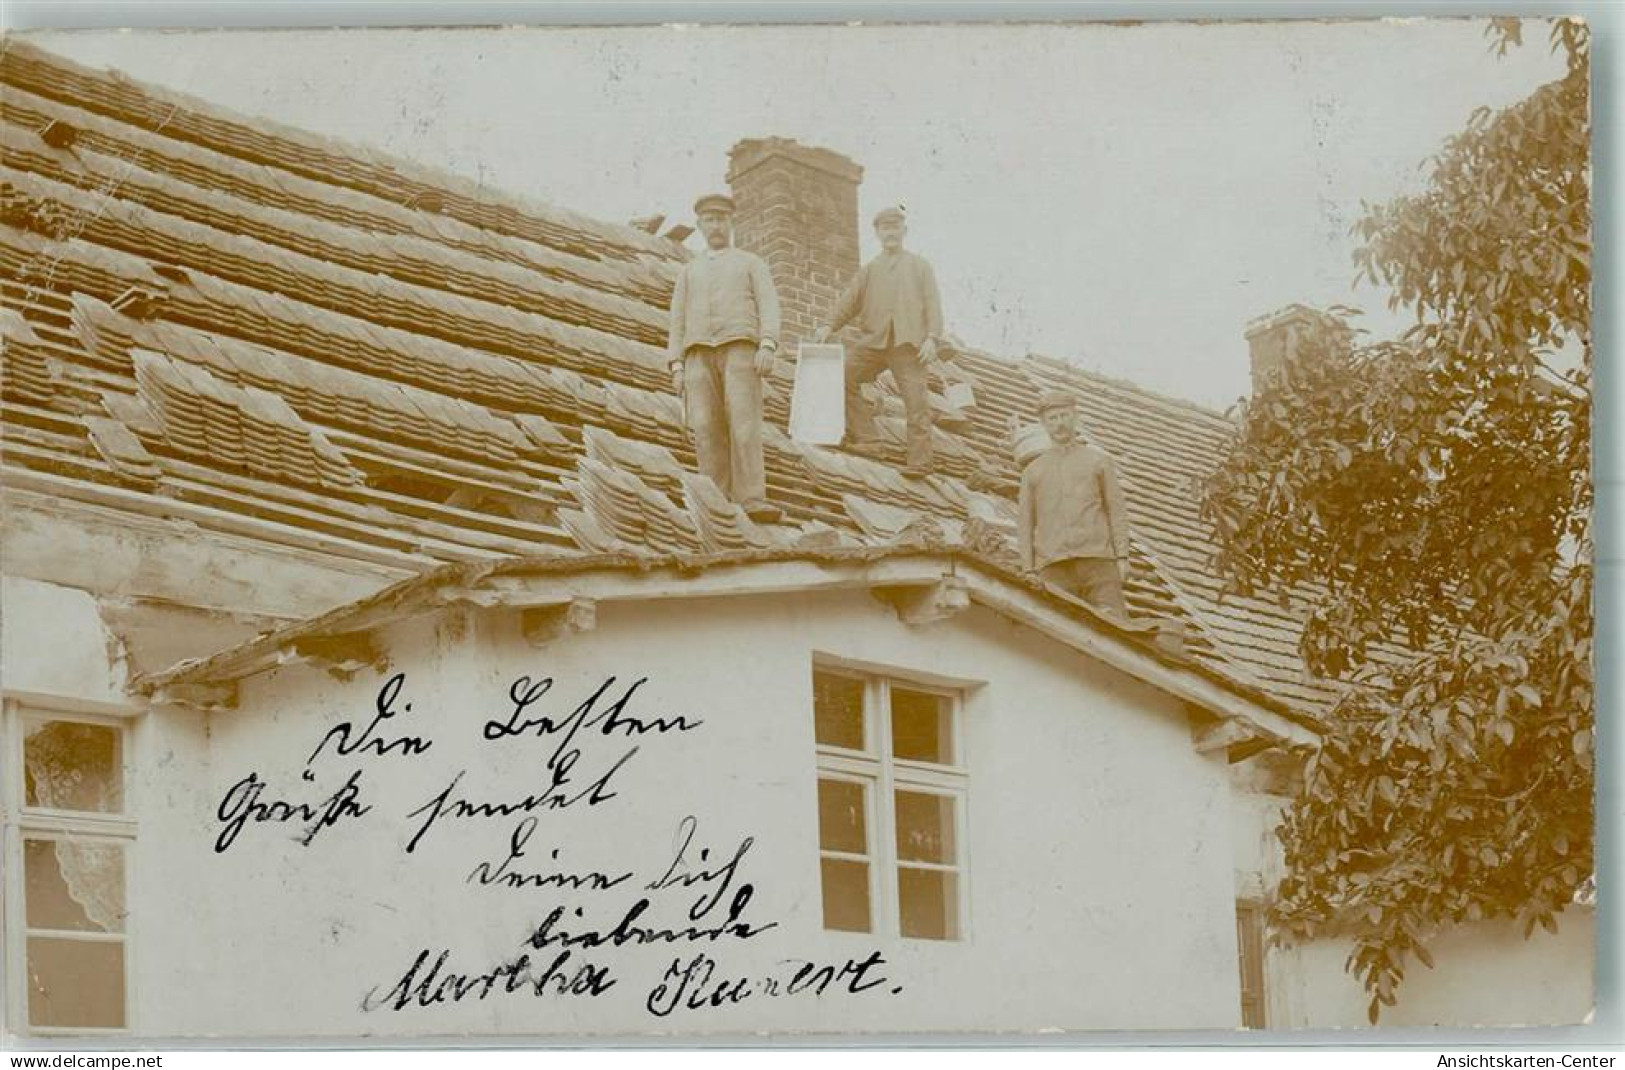 Die Besten
Grüße sendet
Deine Dich
liebende
Martha Kunert.
delcampe.net
Ansichtskarten-Center